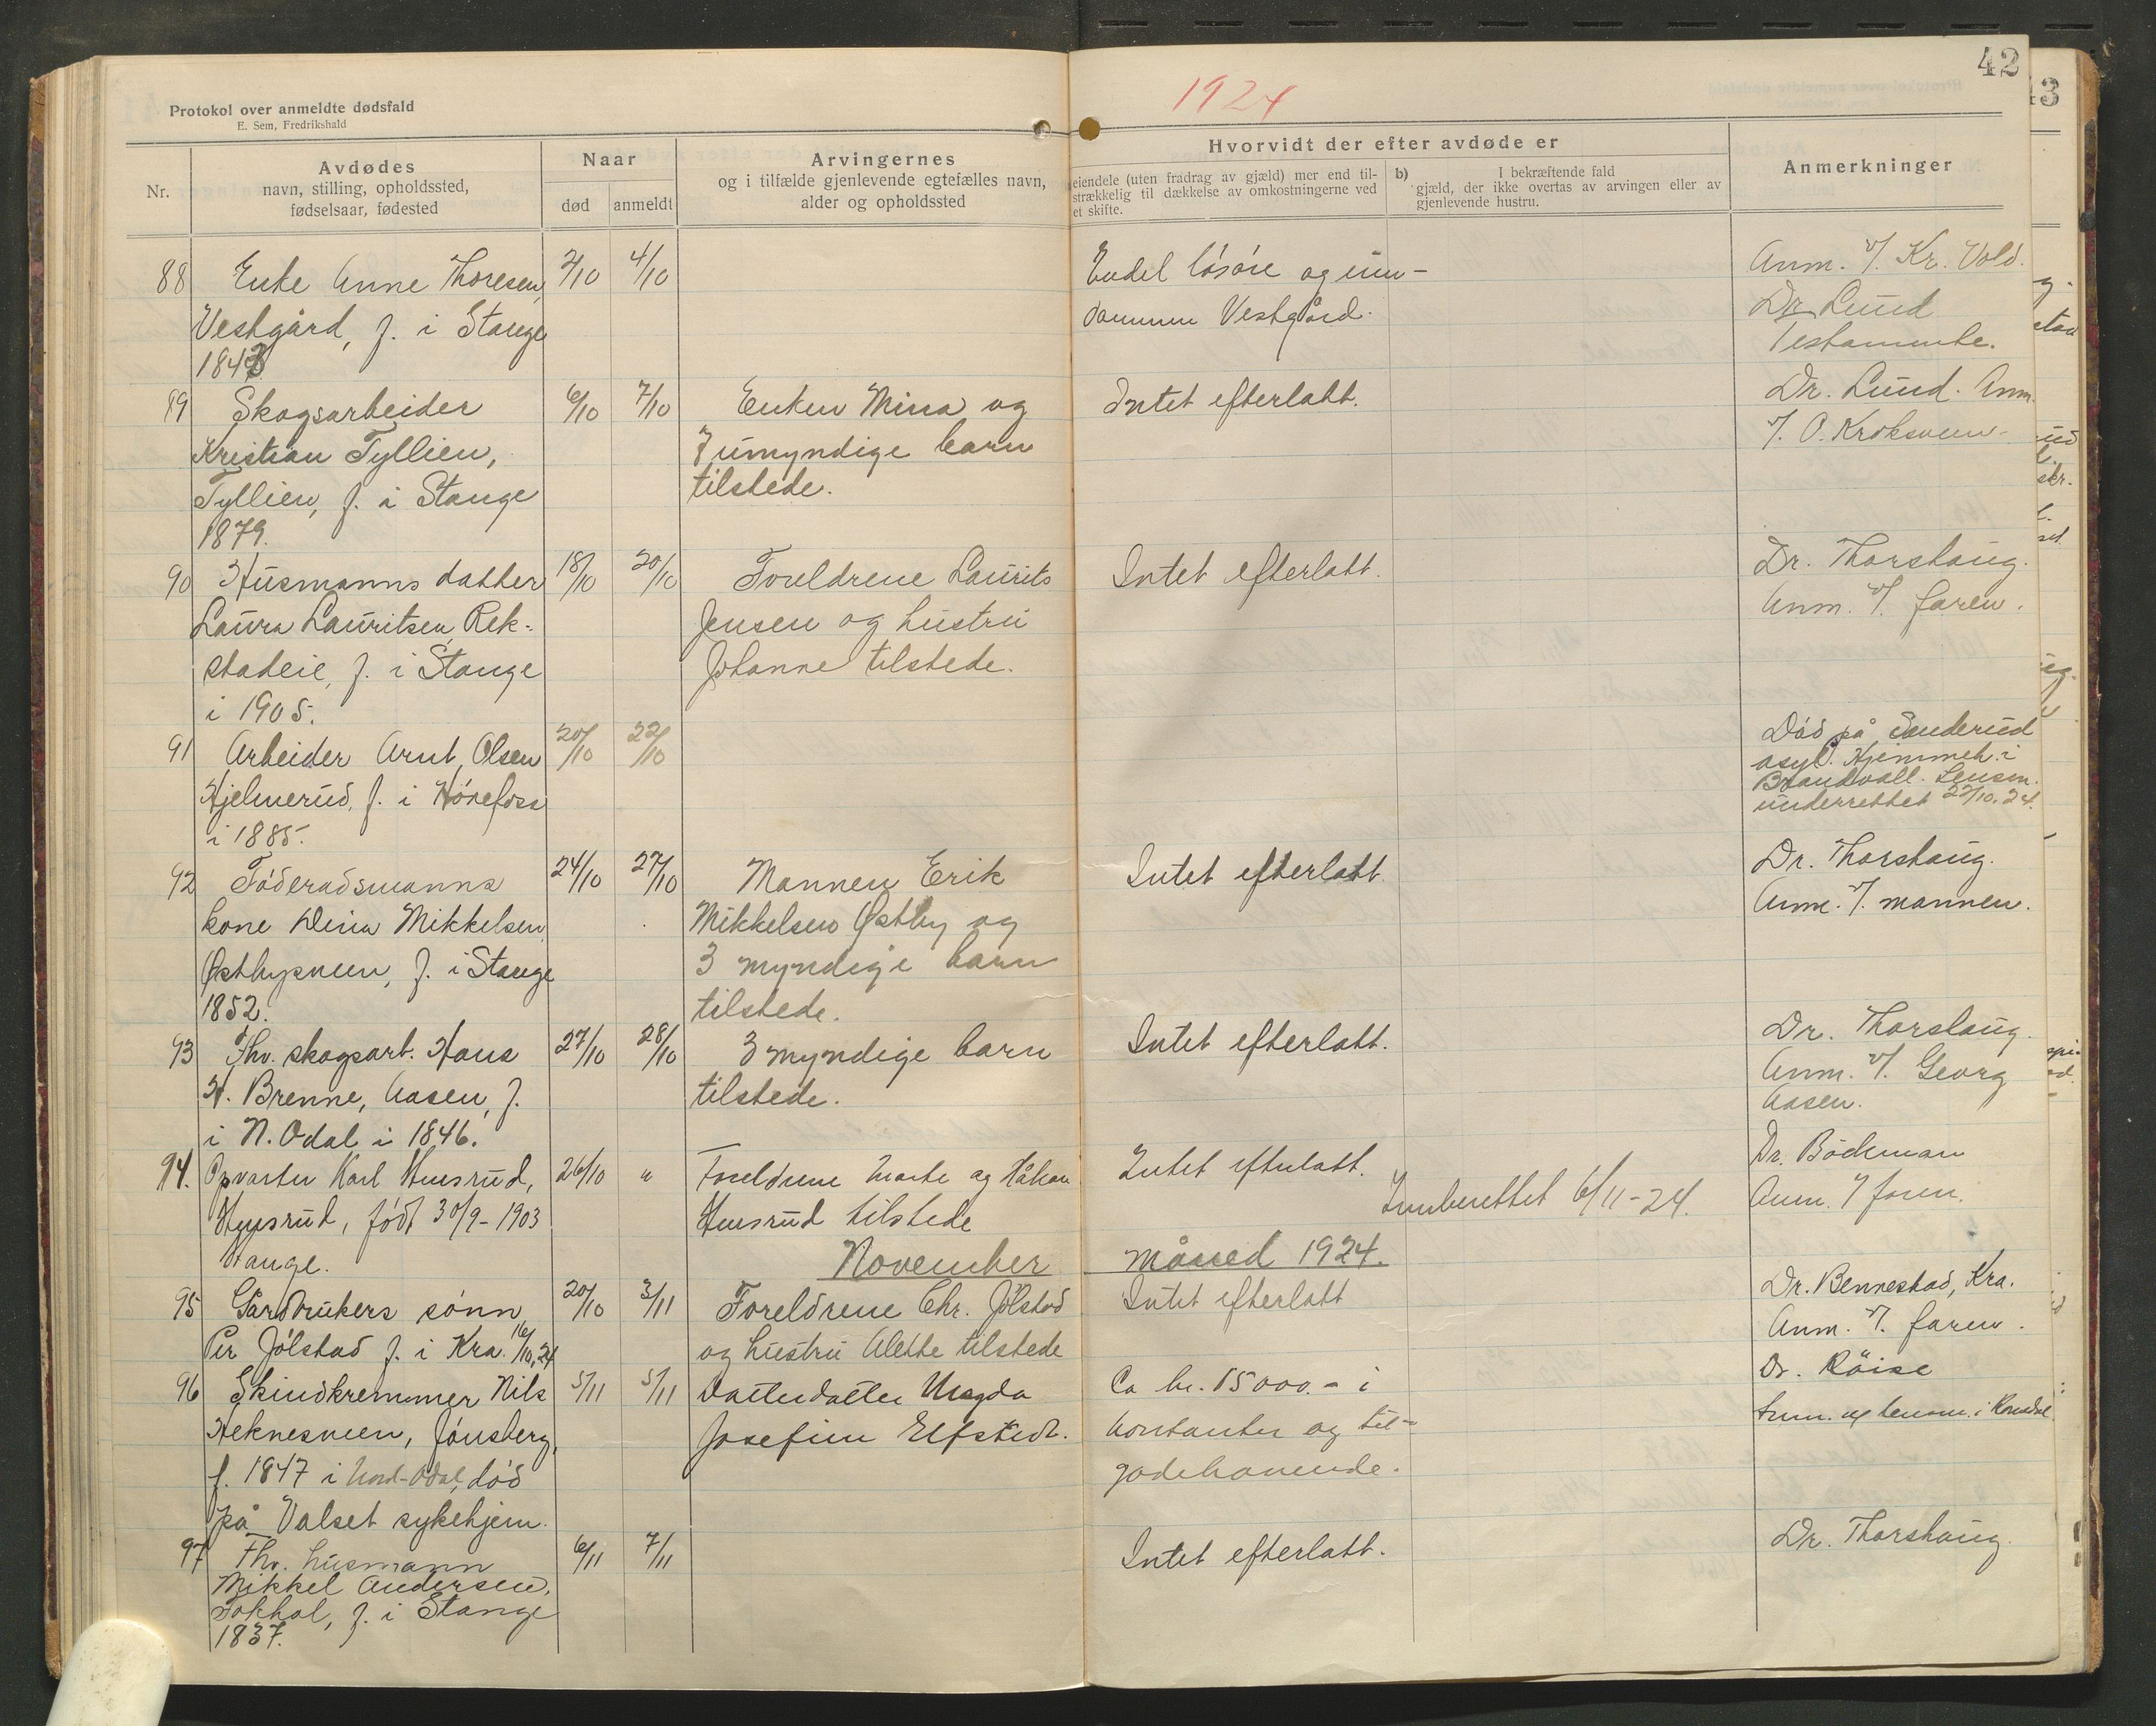 42
43
1924
Protokol over anmeldte dødsfald
E. Sem, Fredrikshald
Nr.
Avdødes
navn, stilling, opholdssted,
fødselsaar, fødested
Naar
død
anmeldt
Arvingernes
og i tilfælde gjenlevende egtefælles navn,
alder og opholdssted
Hvorvidt der efter avdøde er
eiendele (uten fradrag av gjæld) mer end til-
strækkelig til dækkelse av omkostningerne ved
et skifte.
b)
I bekræftende fald
gjæld, der ikke overtas av arvingen eller av
gjenlevende hustru.
Anmerkninger
88 Enke Anne Thoresen, 2/10 4/10 Endel løsøre og eien- Anm. v/. Kr. Vold.
Vestgård, f. i Stange dommen Vestgård. Dr. Lund
1843 Testamente.
89 Skogsarbeider 6/10 7/10 Enken Mina og Intet efterlatt. Dr. Lund. Anm.
Kristian Tyllien, 7 umyndige barn v/. O. Kroksveen.
Tyllien, f. i Stange tilstede.
1879.
90 Husmanns datter 18/10 20/10 Foreldrene Laurits Intet efterlatt. Dr. Thorshaug.
Laura Lauritsen, Rek- Jensen og hustru Anm. v/. faren.
stadeie, f. i Stange Johanne tilstede.
i 1905.
91 Arbeider Arnt Olsen 20/10 22/10 Død på Sanderud
Hjelmerud, f. i Hønefoss asyl. Hjemmeh. i
i 1885. Brandvall. Lensm.
underrettet 22/10.24.
92 Føderadsmanns 24/10 27/10 Mannen Erik Intet efterlatt. Dr. Thorshaug.
kone Dina Mikkelsen, Mikkelsen Østby og Anm. v/. mannen.
Østbysveen, f. i Stange 3 myndige barn
1852. tilstede.
93 Fhv. skogsarb. Hans 27/10 28/10 3 myndige barn Intet efterlatt. Dr. Thorshaug.
H. Brenne, Aasen, f. tilstede. Anm. v/. Georg
i N. Odal i 1846. Aasen.
94. Opvarter Karl Husrud, 26/10 " Foreldrene Marte og Håkon Intet efterlatt. Dr. Bödtman
Husrud, født 30/9-1903 Husrud tilstede Innberettet 6/11-24. Anm. v/ faren.
Stange.
November måned 1924.
95 Gårdbrukers sønn 20/10 3/11 Foreldrene Chr. Jølstad Intet efterlatt Dr. Bennestad, Kra.
Per Jølstad f. i Kra. 16/10,24 og hustru Alette tilstede Anm. v/. faren.
96 Skindkremmer Nils 5/11 5/11 Datterdatter Magda Ca kr. 15000.- i Dr. Röise
Heknesveen, Jønsberg, Josefine Elfstedt. kontanter og til- lensm. i Romedal
f. 1847 i Nord-Odal, død godehavende.
på Valset sykehjem.
97 Fhv. husmann 6/11 7/11 Intet efterlatt. Dr. Thorshaug.
Mikkel Andersen,
Fokhol, f. i Stange
1837.